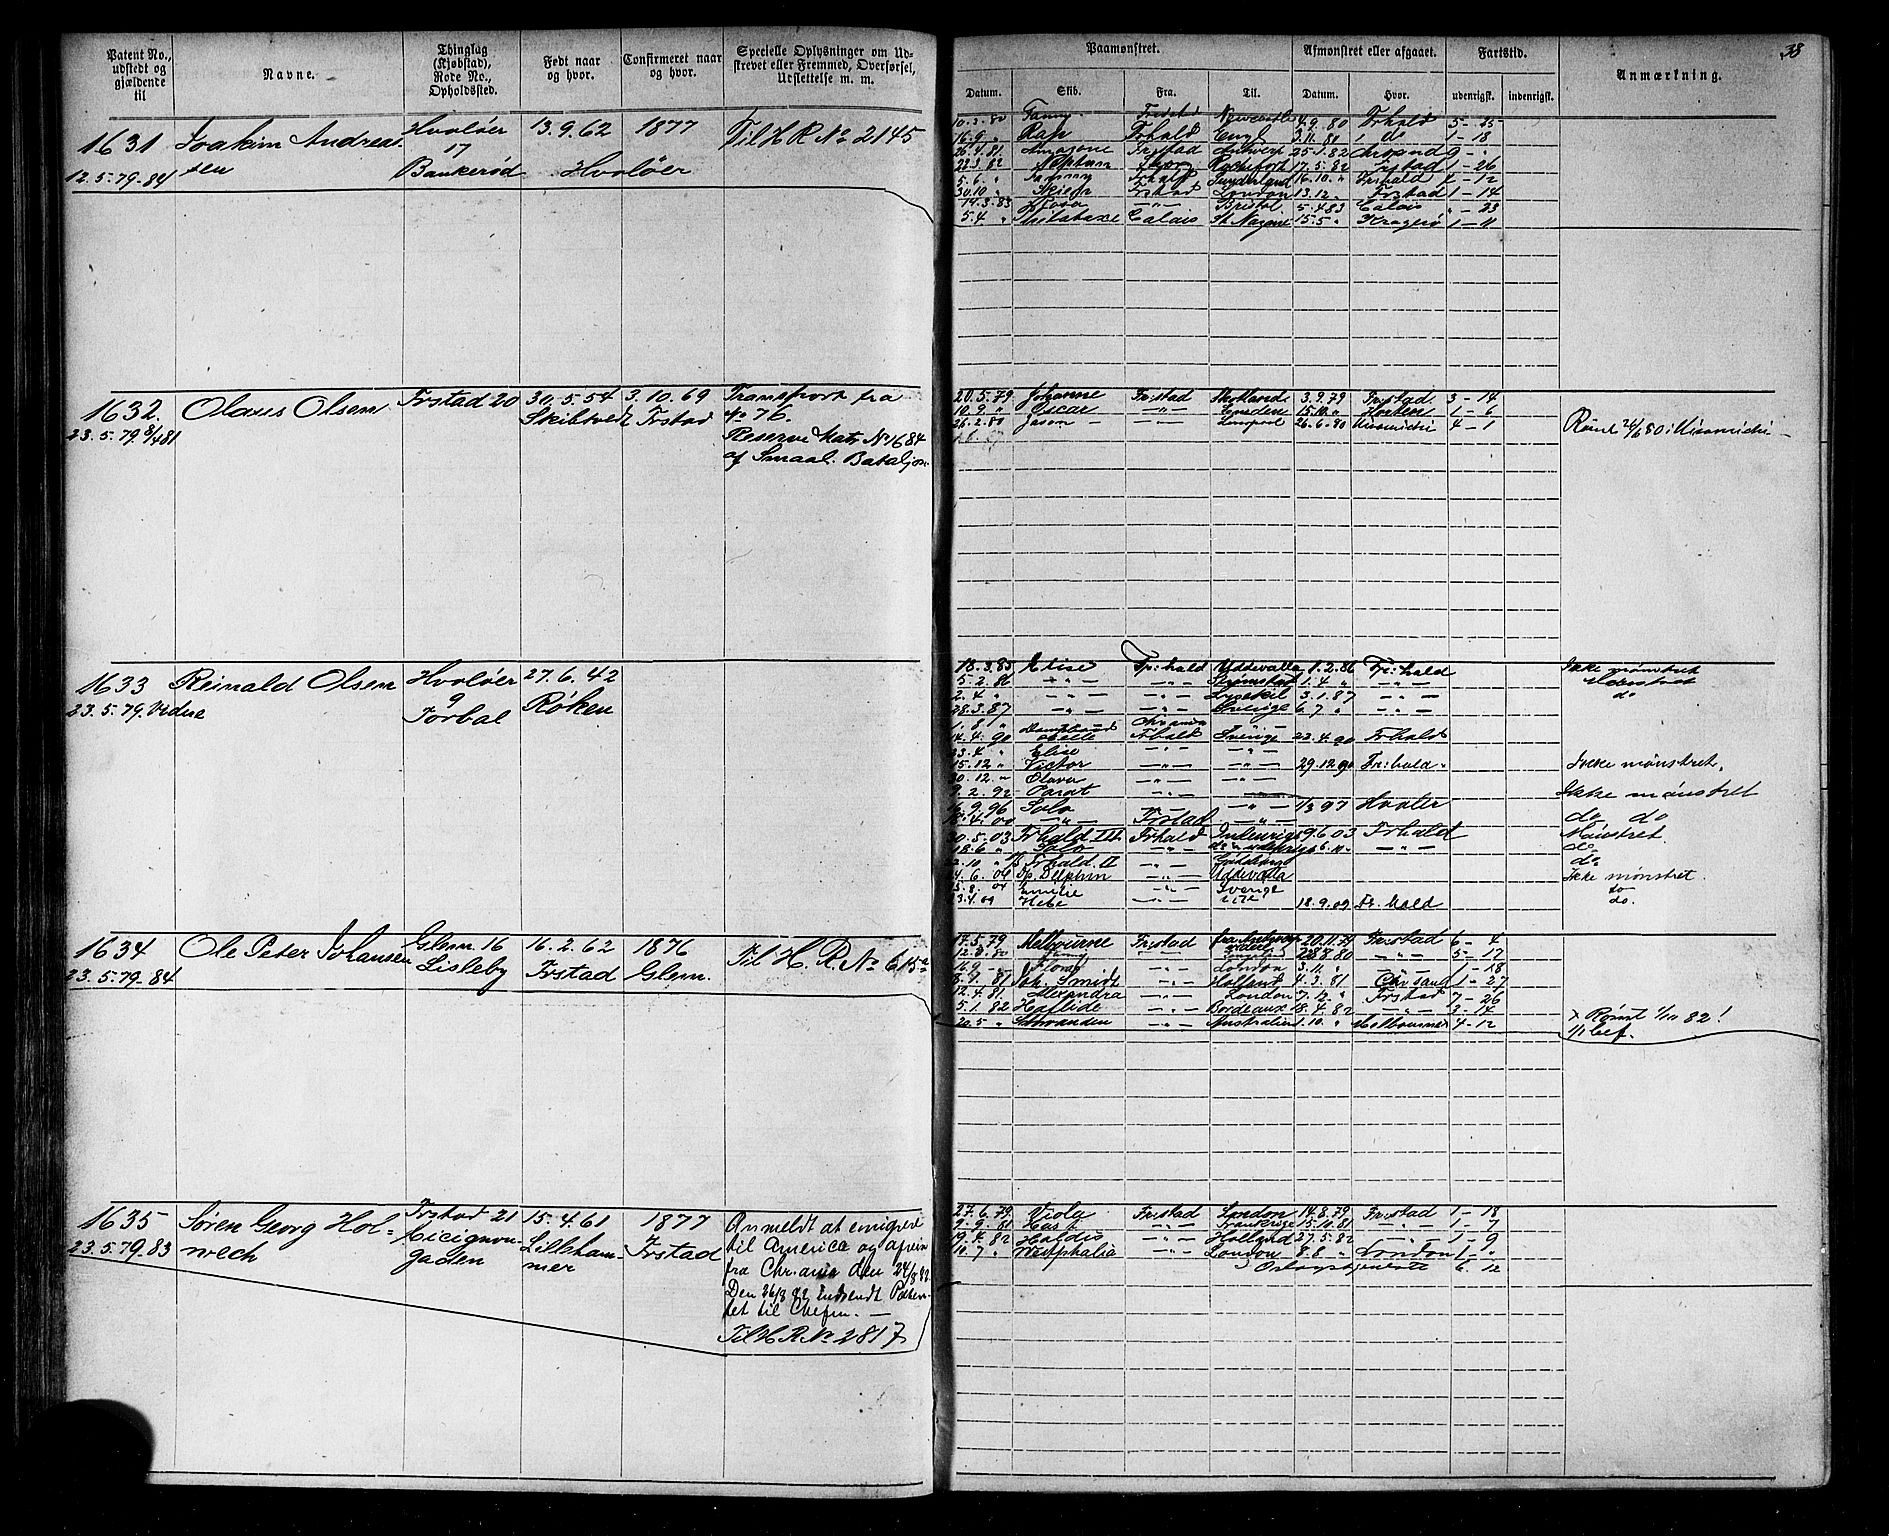 Patent No., udstedt og gjældende til
Navne.
Thinglag (Kjøbstad), Rode No., Opholdssted.
Født naar og hvor.
Confirmeret naar og hvor.
Specielle Oplysninger om Udstrevet eller Fremmed, Overførsel, Udslettelse m. m.
Paamønstret.
Afmønstret eller afgaaet.
Fartstid.
Anmærkning.
38
Datum.
Skib.
Fra.
Til.
Datum.
Hvor.
udenrigst.
indenrigst.
1631 Joakim Andreas- Hvaløer 13.9.62 1877 Til H R No 2145
sen 17
12.5.79-84 Bankerød Hvaløer
10.3.80 Fanny Fredstad Newcastle 4.9.80 Frhald 5-25
16.9 " Ran Frhald Engl 3.11.81 do 1-18
26.4.81 Amazone Frstad Antwerp 25-1.82
22.3.82 Neptun Rochefort 17.5.82 Frstad 1-26
5.6. " Sunderland 16.10. " Frhald 1-12
30.10 " Frstad London 13.12. Frstad 1-14
14.3.83 -"- Bristol 5.4.83 Calais "-23
5.4 " Calais St. Nazaire 15.5 " Kragerø 1-11
1632. Olaus Olsen Frstad 20 30.5.54 3.10.69 Transport fra
23.5.79 8/4 81 Skibtvedt Frstad No 76.
Reserve Matr No 1684
af Smaal. Bataljon
20.5.79 Johanne Frstad Skotland 3.9.79 Frstad. 3-14
10.9 " Oscar -"- Emden 15.10 " Horten 1-6
26.2.80 Jason - -"- Liverpool 26.6.80 Miramichi 4-1
Rømt 26/6 80 i Miramichi -
1633 Reinald Olsen Hvaløer 27.6.42
23.5.79. Vedvre 9 Røken
Torbal
18.3.85 Elise Fr:hald Uddevalla 1.2.86 Fr:hald Ikke mønstret
5.2.86 -"- -"- Strømstad 1.4 " -"- Mønstret
2.4 " -"- -"- Lysekil 3.1.87 -"- do
28.3.87 -"- -"- Sverige 6.7 " -"-
1.8 "
14.4.90 Frhald Sverige 22.4.90 Frhald
23.4 " Elise -"- -"-
15.12 " Victor -"- 29.12.90 Fr:hald. Ikke mønstret.
20.12. " Olava -"-
9.2.92 -"- Ikke mønstret
16.9.96 Solo -"- 1/3 97 Hvaler
-"- Frstad -"- do do
20.5.03 Frhald III Frhald Indenrigs 9.6.03 Frhald Mønstret.
18.6 " Solo -"- -"- do
2.10 " Frhald. II -"- Gøteborg do
4.6.04 Delphin -"- Uddevalla Ikke mønstret.
Emilie -"- Sverige do
3.4.09 Hebe -"- 18.9.09 Fr. hald do.
1634 Ole Peter Johansen Glem. 16 16.2.62 1876 Til H. R. No 615a
23.5.79-84 Lisleby Frstad Glem.
17.5.79 Melbourne Frstad 20.11.79 Frstad 6-4
12.3.80 -"- England 28.8.80 -"- 5-17
16.9 - Flora -"- London 3.11. " -"- 1-18
8.1.81 Joh. Smidt -"- Holland 4.3.81 Chr sand 1-27
12.4.81 Alexandra -"- London 7.12. " Frstad 7-26
5.1.82 Haflide -"- Bordeaux 18.4.82 -"- 3-14
20.5 " -"- Australien 1.10. " Melbourne 4-12
x Rømt 1/10 82!
1/1 bef.
1635 Søren Georg Hol- Frstad 21 15.4.61 1877 Anmeldt at emigrere
23.5.79.83 wech Cicignon- Lilleham- Frstad til America og afrein
gaden mer fra Chr.ania den 24/8 82
Den 26/8 82 indsendt Paten-
tet til Chefen. -
Til H R No 2817
27.6.79 Viola Frstad London 14.8.79 Frstad 1-18
9.9.81 Hast -"- Frankrige 15.10.81 -"- 1-7
19.4.82 Haldis -"- Holland 27.5.82 -"- 1-9
10.7 " Westphalia -"- London 8.8 " London 1-"
Orlogstjeneste 6.12